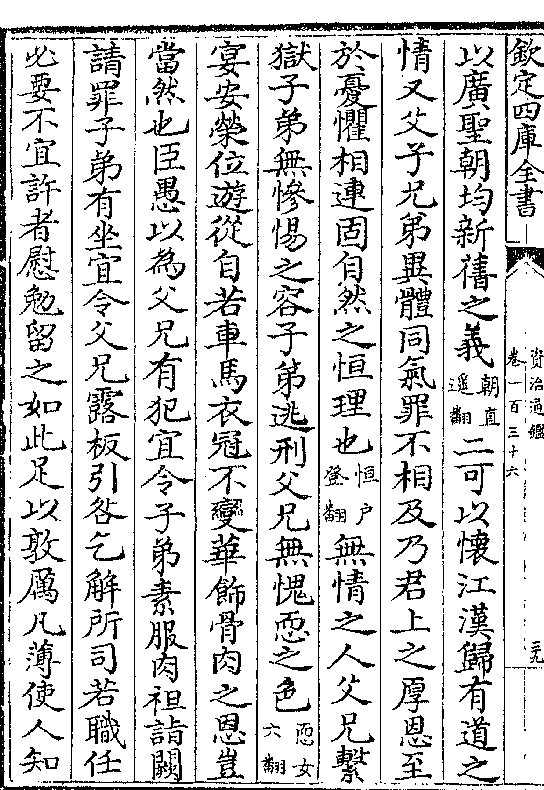 欽定四庫全書
資治通鑑
卷一百三十六
三九
以廣聖朝均新舊之義朝直遥翻二可以懷江漢歸有道之
情又父子兄弟異體同氣罪不相及乃君上之厚恩至
於憂懼相連固自然之恒理也恒户登翻無情之人父兄繫
獄子弟無慘惕之容子弟逃刑父兄無愧恧之色恧女六翻
宴安榮位遊從自若車馬衣冠不變華飾骨肉之恩豈
當然也臣愚以為父兄有犯宜令子弟素服肉袒詣闕
請罪子弟有坐宜令父兄露板引咎乞解所司若職任
必要不宜許者慰勉留之如此足以敦厲凡薄使人知